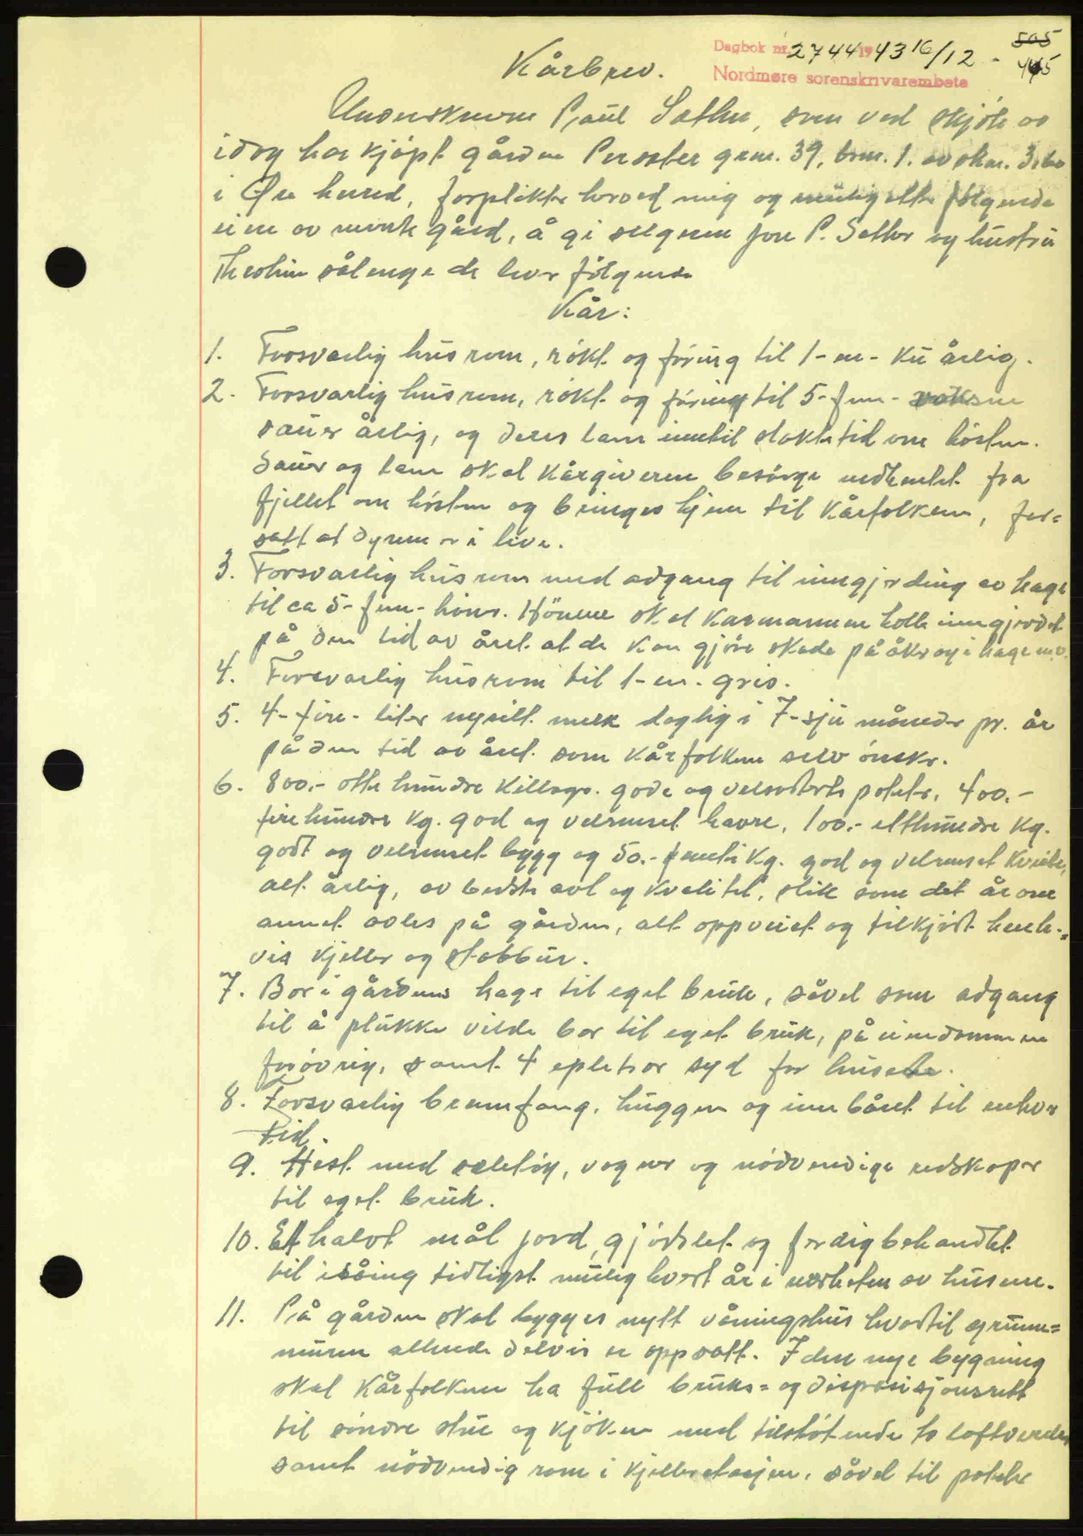 Dagbok nr. 2744 1943 16/12 - 505
Nordmøre sorenskrivarembete 445
Kårbrev.
Underskrevne Paul Sæther, som ved skjøte av
idag har kjøpt gården Peroster grnr. 39, brnr. 1. av skm. 3
i Øre herred, forplikter herved mig og mulig etterfølgende
eiere av nevnte gård, å gi selgeren Jon P. Sæther og hustru
sålenge de lever følgende
Kår:
1. Forsvarlig husrom, røkt og fóring til 1-en- ku årlig.
2. Forsvarlig husrom, røkt og fóring til 5-fem- voksne
sauer årlig, og deres lam inntil slaktetid om høsten.
Sauer og lam skal kårgiveren besørge nedhentet fra
fjellet om høsten og bringes hjem til kårfolkene, for=
satt at dyrene er i live.
3. Forsvarlig husrom med adgang til inngjerding av hage
til ca 5-fem-høns. Hönene skal karmannen holde inngjerdet
på den tid av året at de kan gjøre skade på åker og i hage m.v.
4. Forsvarlig husrom til 1-en- gris.
5. 4-fire- liter nysilt melk daglig i 7-sju måneder pr. år
på den tid av året som kårfolkene selv ønsker.
6. 800.- otte hundre kilogr. gode og velsorterte poteter, 400.-
firehundre kg. god og velrenset havre, 100.- etthundre kg.
godt og velrenset bygg og 50.- femti kg. god og velrenset kveite,
alt årlig, av beste avl og kvalitet, slik som det år om
annet avles på gården, alt oppveiet og tilkjørt hen=
vis kjeller og stabbur.
7. Bær i gårdens hage til eget bruk, såvel som adgang
til å plukke vilde bær til eget bruk, på eiendommen
forøvrig, samt 4 epletrær syd for husene.
8. Forsvarlig brennfang, huggen og innbåret til enhver
tid.
9. Hest med seletøy, vogner og nødvendige redskaper
til eget bruk.
10. Et halvt mål jord, gjødslet og ferdig behandlet
til isåing tidligst mulig hvert år i nærheten av husene.
11. På gården skal bygges nytt våningshus hvortil grunn=
muren allerede delvis er oppsatt. I den nye bygning
skal kårfolkene ha full bruks= og disposisjonsrett
til søndre stue og kjøken med tilstøtende to loftværelser
samt nødvendig rom i kjelleretasjen, såvel til poteter